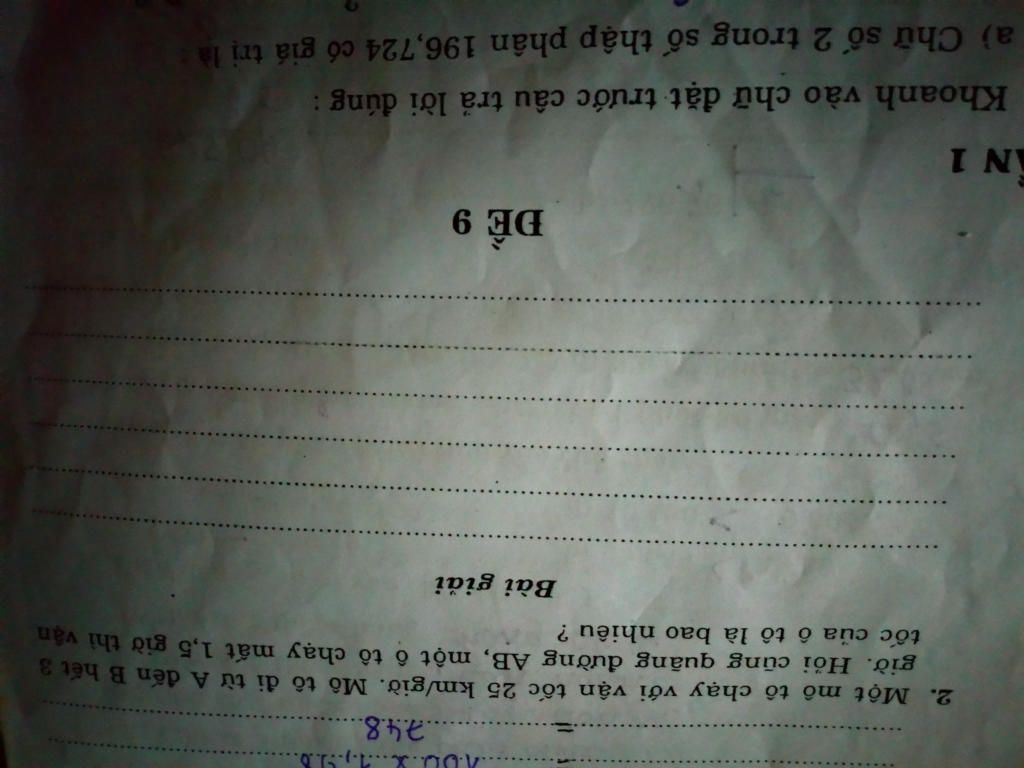 =
= 748
2. Một mô tô chạy với vận tốc 25 km/giờ. Mô tô đi từ A đến B hết 3
giờ. Hỏi cũng quãng đường AB, một ô tô chạy mất 1,5 giờ thì vận
tốc của ô tô là bao nhiêu ?
Bài giải
ĐỀ 9
1
Khoanh vào chữ đặt trước câu trả lời đúng :
a) Chữ số 2 trong số thập phân 196,724 có giá trị là :